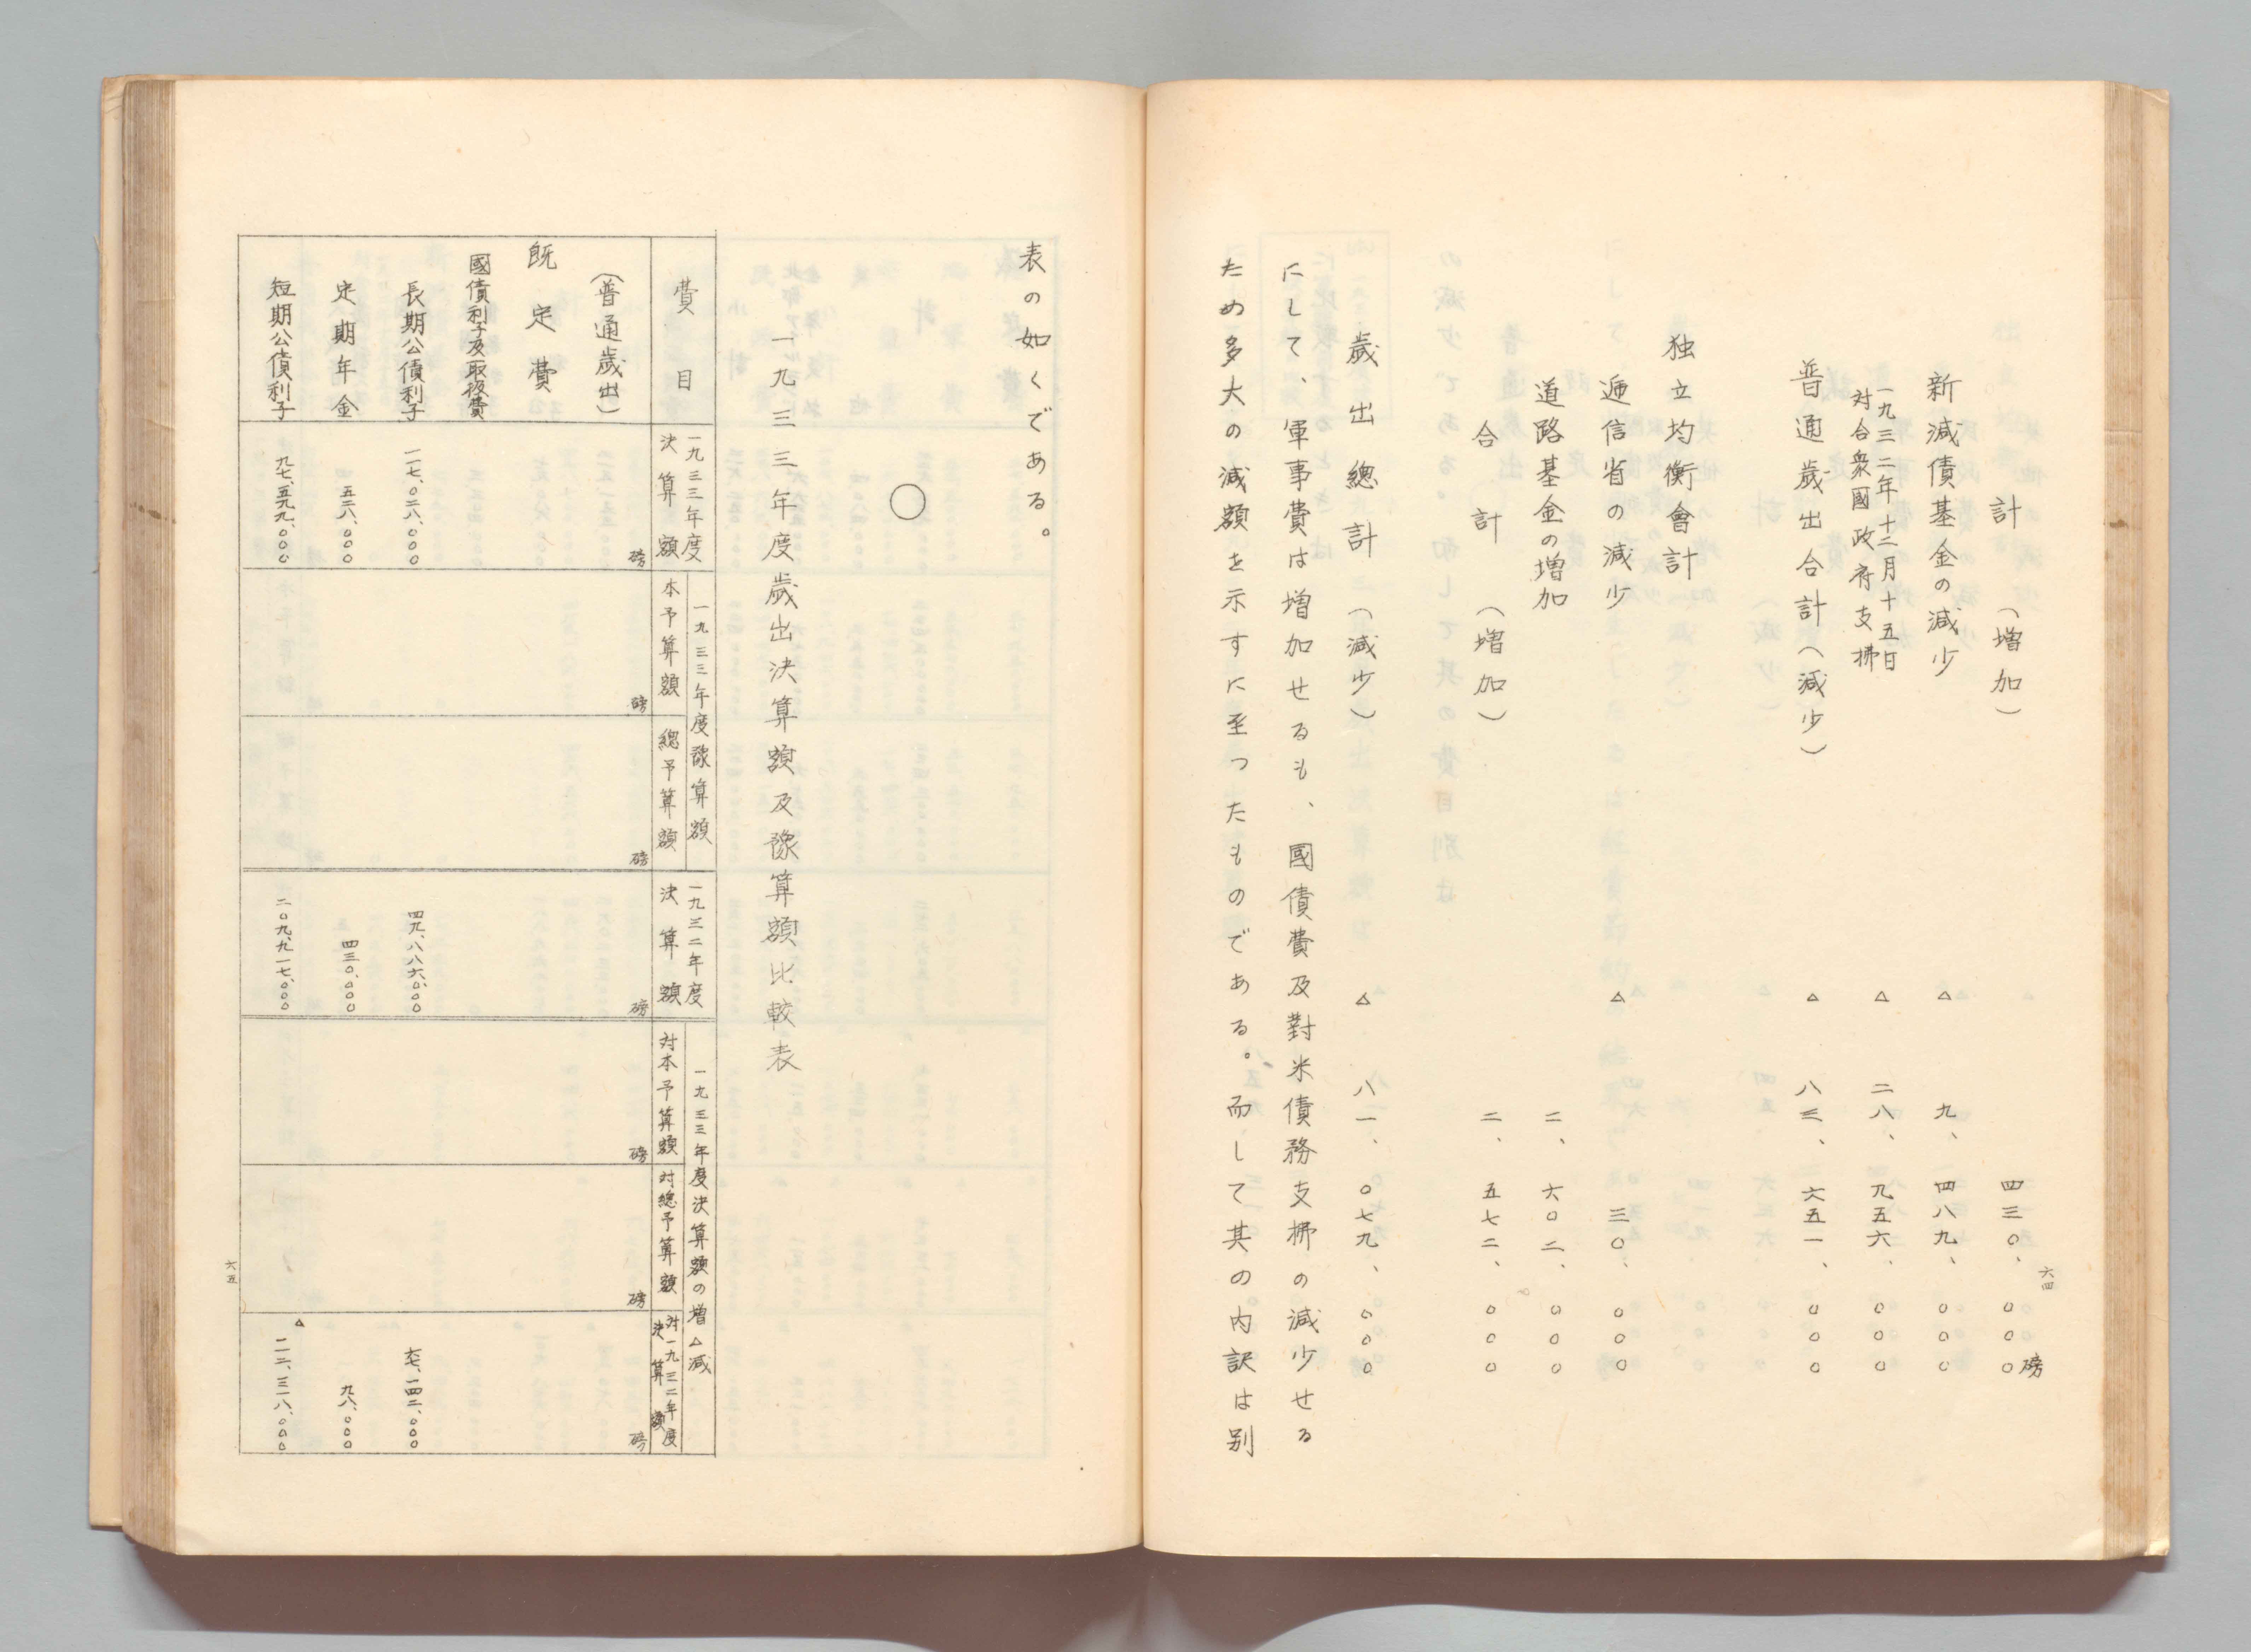 計（増加） 四三〇、〇〇〇磅
新減債基金の減少 △ 九、四八九、〇〇〇
一九三二年十二月十五日
対合衆國政府支拂 △ 二八、九五六、〇〇〇
普通歳出合計（減少） △ 八三、六五一、〇〇〇
独立均衡會計
逓信省の減少 △ 三〇、〇〇〇
道路基金の増加 二、六〇二、〇〇〇
合計（増加） 二、五七二、〇〇〇
歳出總計（減少） △ 八一、〇七九、〇〇〇
にして、軍事費は増加せるも、國債費及對米債務支拂の減少せる
ため多大の減額を示すに至つたものである。而して其の内訳は別
六四
表の如くである。
〇
一九三三年度歳出決算額及豫算額比較表
費目
一九三三年度
決算額
磅
一九三三年度豫算額
本予算額
磅
總予算額
磅
一九三二年度
決算額
磅
一九三三年度決算額の増△減
対本予算額
磅
対總予算額
磅
対一九三二年度
決算額
磅
（普通歳出）
既定費
國債利子及取扱費
長期公債利子 一一七、〇二八、〇〇〇 四九、八八六、〇〇〇 六七、一四二、〇〇〇
定期年金 五二八、〇〇〇 四三〇、〇〇〇 九八、〇〇〇
短期公債利子 九七、五九九、〇〇〇 二〇九、九一七、〇〇〇 △ 一一二、三一八、〇〇〇
六五